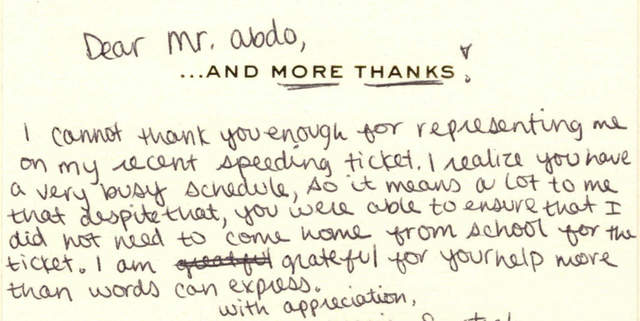 Dear Mr. Abdo,
...AND MORE THANKS!
I cannot thank you enough for representing me
on my recent speeding ticket. I realize you have
a very busy schedule, so it means a lot to me
that despite that, you were able to ensure that I
did not need to come home from school for the
ticket. I am greatful grateful for your help more
than words can express.
with appreciation,